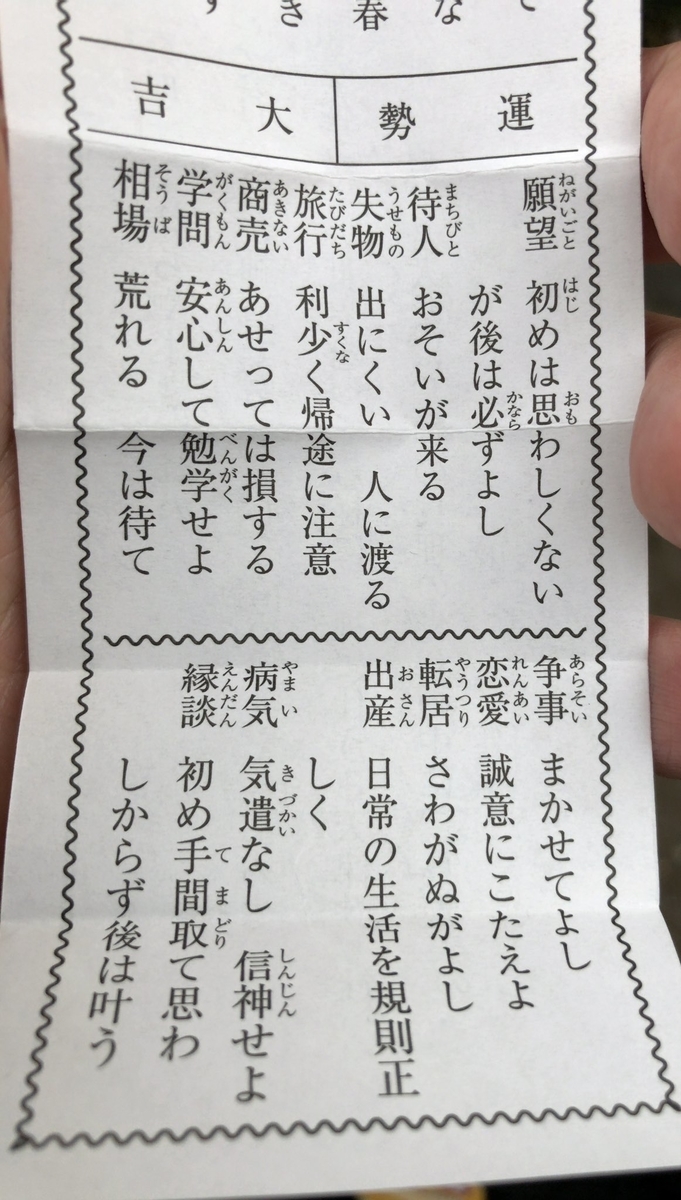 て
な
春
き
す
運勢 大吉
願望 初めは思わしくない
が後は必ずよし
待人 おそいが来る
失物 出にくい 人に渡る
旅行 利少く帰途に注意
商売 あせっては損する
学問 安心して勉学せよ
相場 荒れる 今は待て
争事 まかせてよし
恋愛 誠意にこたえよ
転居 さわがぬがよし
出産 日常の生活を規則正
しく
病気 気遣なし 信神せよ
縁談 初め手間取て思わ
しからず後は叶う